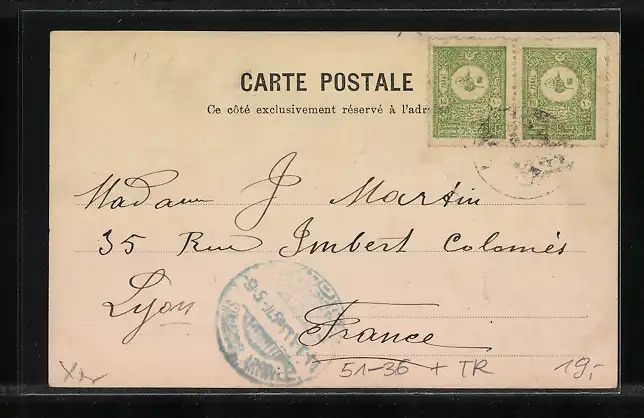 CARTE POSTALE
Ce côté exclusivement réservé à l'adr
Madame J Martin
35 Rue Imbert Colomés
Lyon
France
51-36 + TR
19,-